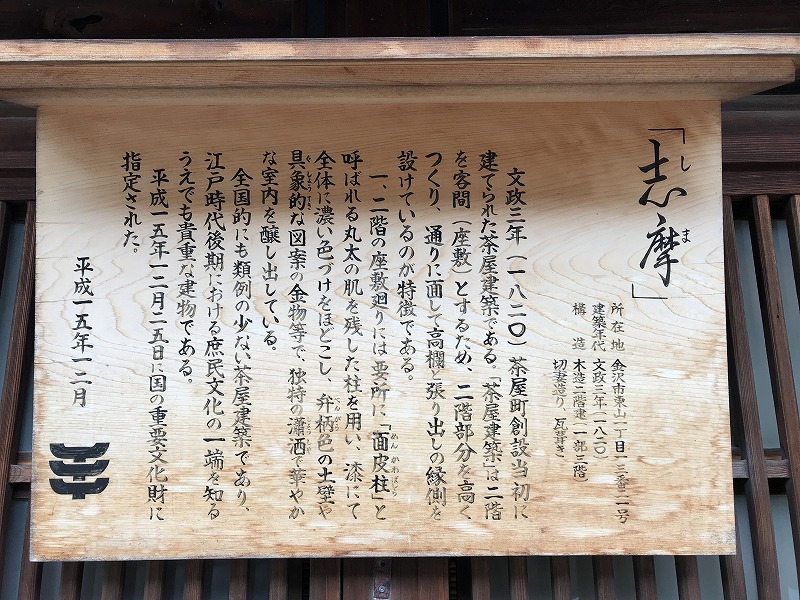 「志摩」
しま
所在地 金沢市東山一丁目一三番二一号
建築年代 文政三年(一八二〇)
構造 木造二階建 一部三階
切妻造り、瓦葺き
文政三年(一八二〇)茶屋町創設当初に
建てられた茶屋建築である。「茶屋建築」は二階
を客間(座敷)とするため、二階部分を高く
つくり、通りに面して高欄と張り出しの縁側を
設けているのが特徴である。
一、二階の座敷廻りには要所に「面皮柱」と
めんかわばしら
呼ばれる丸太の肌を残した柱を用い、漆にて
全体に濃い色づけをほどこし、弁柄色の土壁や
べんがら
具象的な図案の金物等で、独特の瀟洒で華やか
ぐしょうてき
しょうしゃ
な室内を醸し出している。
全国的にも類例の少ない茶屋建築であり、
江戸時代後期における庶民文化の一端を知る
うえでも貴重な建物である。
平成一五年一二月二五日に国の重要文化財に
指定された。
平成一五年一二月